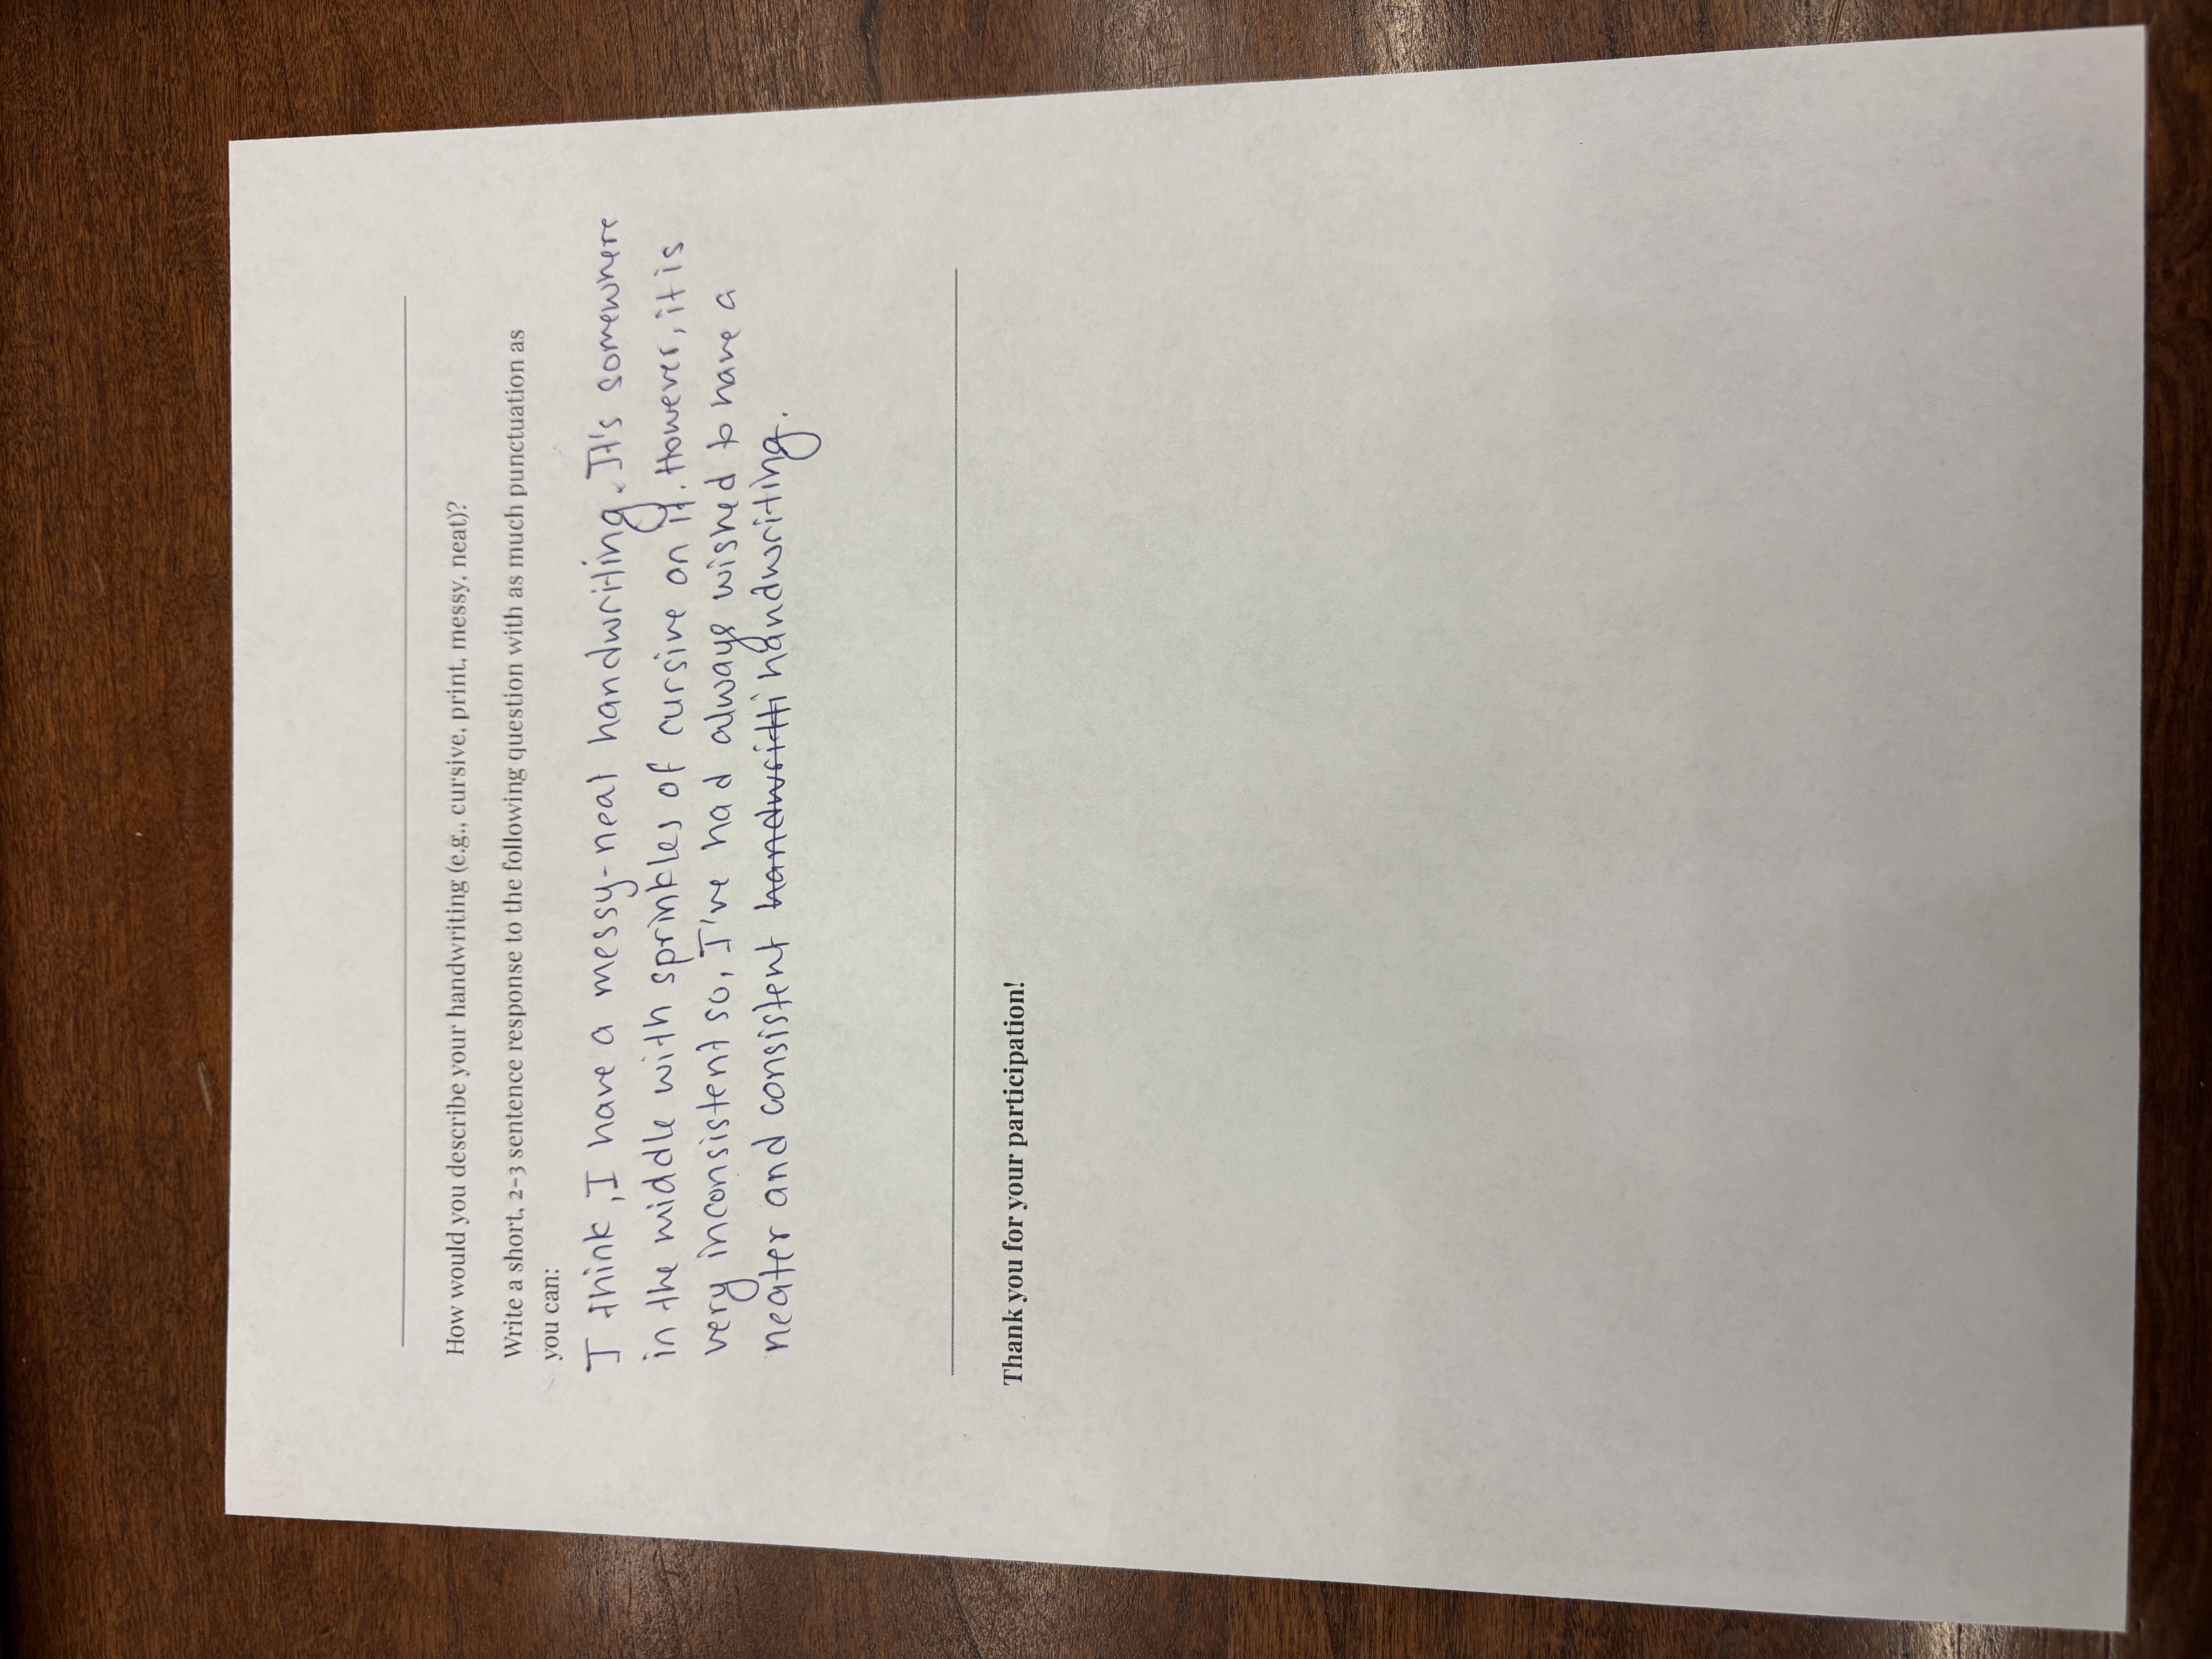 How would you describe your handwriting (e.g., cursive, print, messy, neat)?
Write a short, 2-3 sentence response to the following question with as much punctuation as
you can:
I think, I have a messy-neat handwriting. It's somewhere
in the middle with sprinkles of cursive on it. However, it is
very inconsistent so, I've had always wished to have a
neater and consistent handwritti handwriting.
Thank you for your participation!